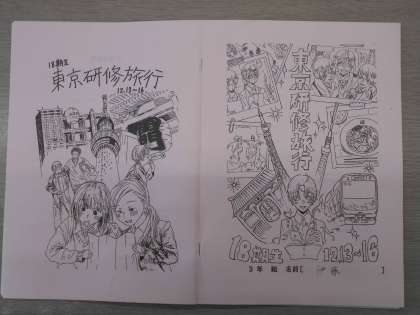 18期生
東京研修旅行
12.13~16
東京研修旅行
18期生
12.13~16
3年 組 名前[ ]